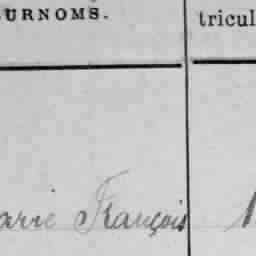 URNOMS.
tricul
arie François